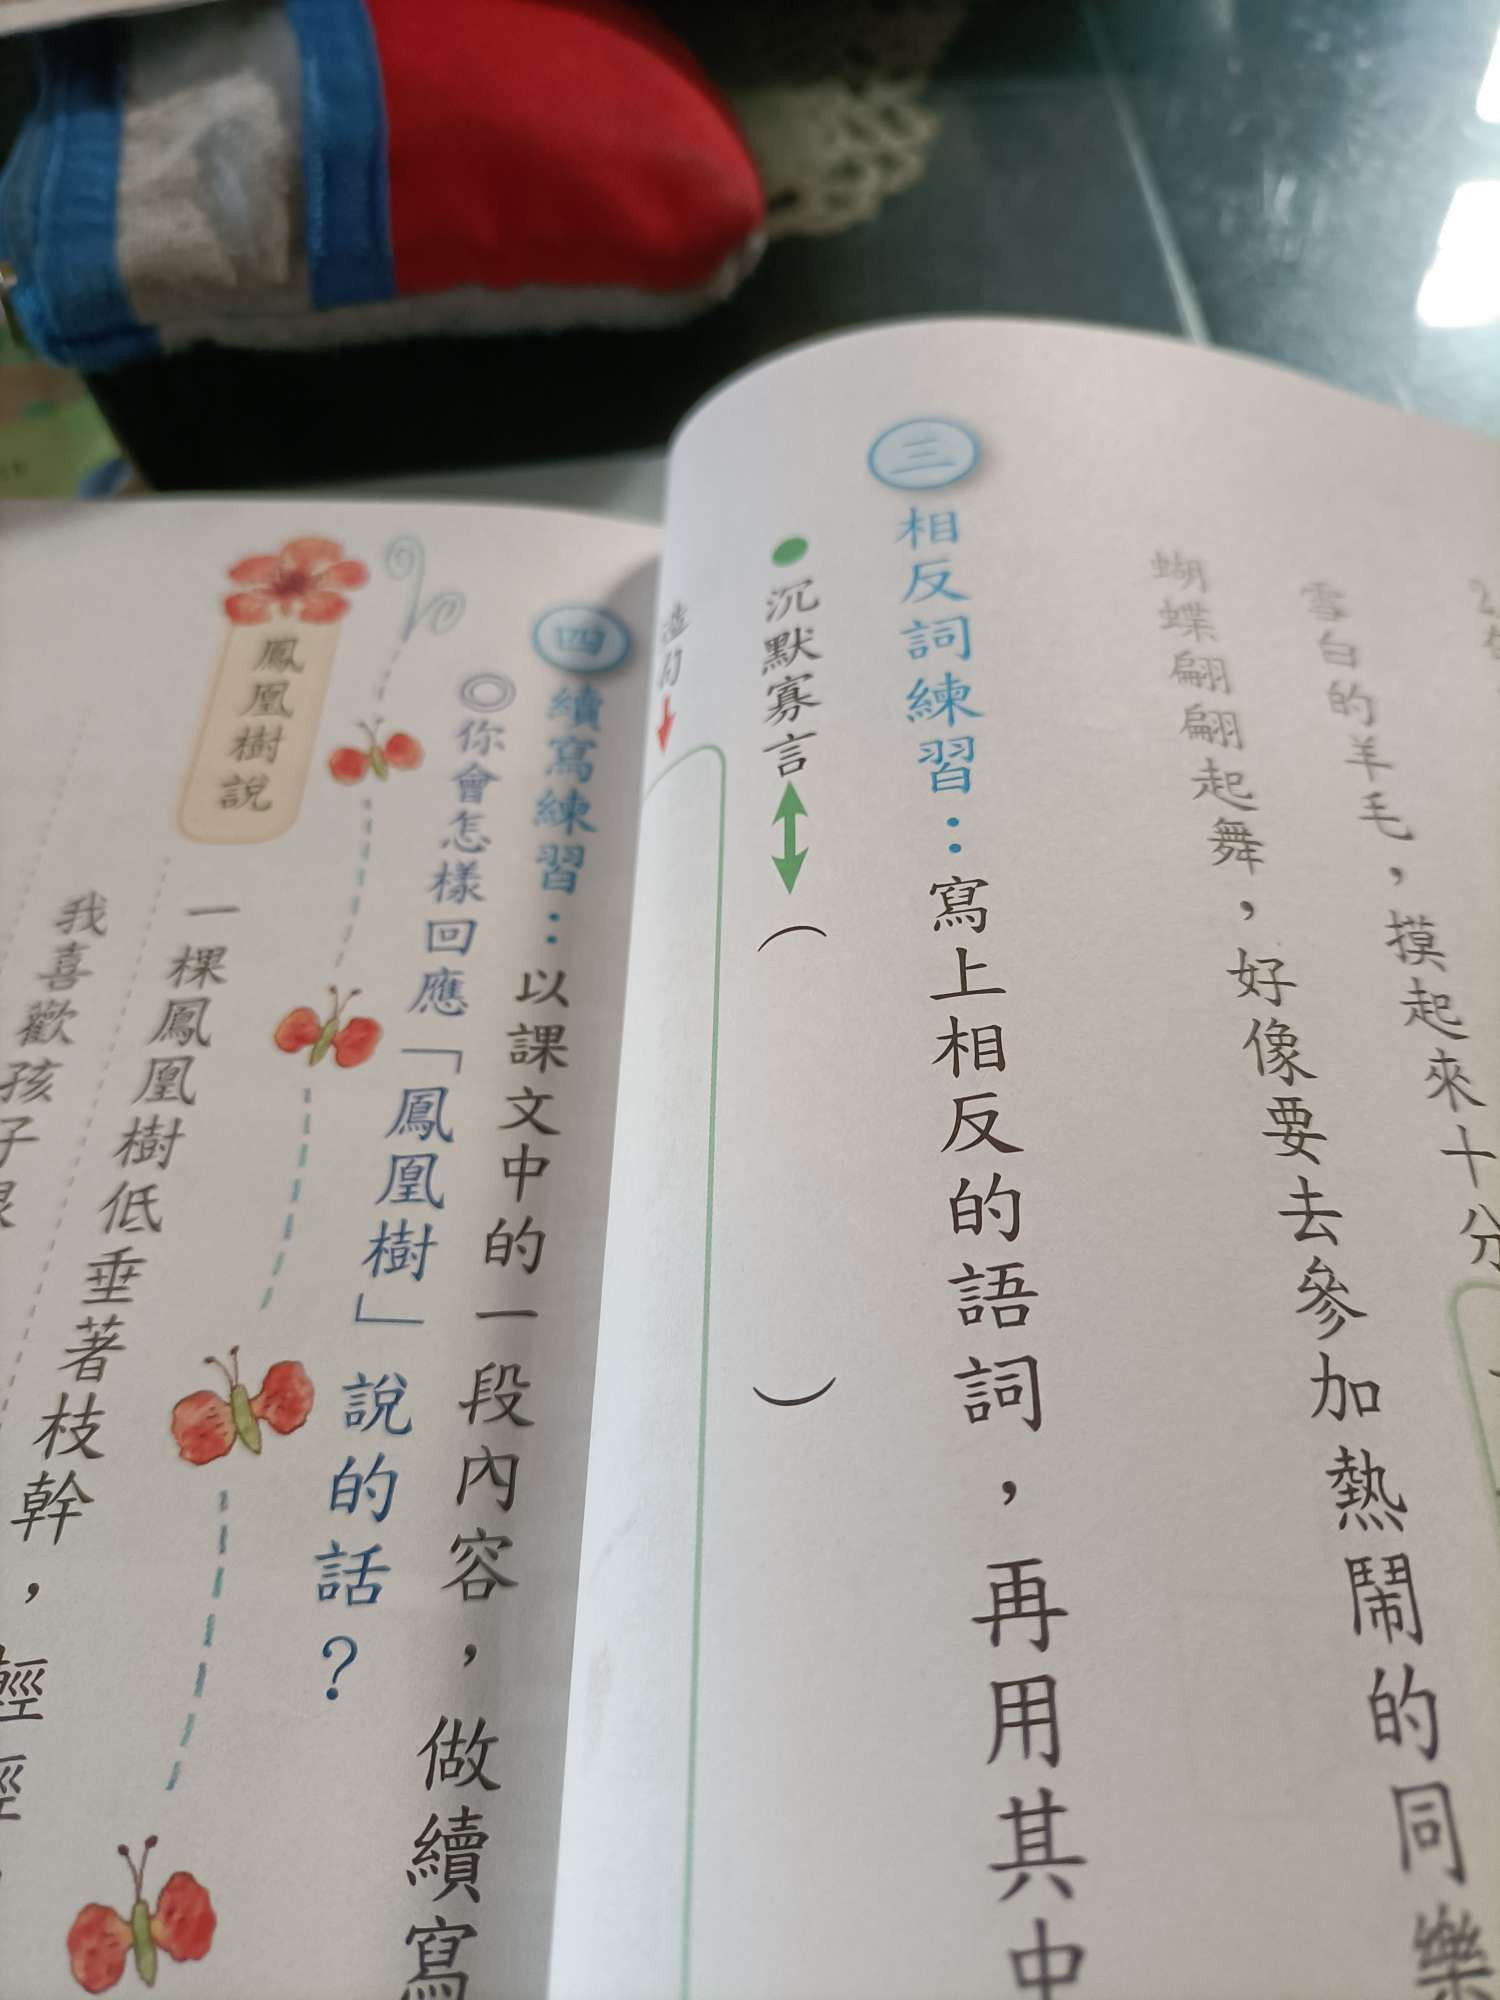 雪白的羊毛，摸起來十分
蝴蝶翩翩起舞，好像要去參加熱鬧的同樂
三 相反詞練習：寫上相反的語詞，再用其中
沉默寡言（ ）
造句
四 續寫練習：以課文中的一段內容，做續寫
◎你會怎樣回應「鳳凰樹」說的話？
鳳凰樹說
一棵鳳凰樹低垂著枝幹，輕輕
我喜歡孩子